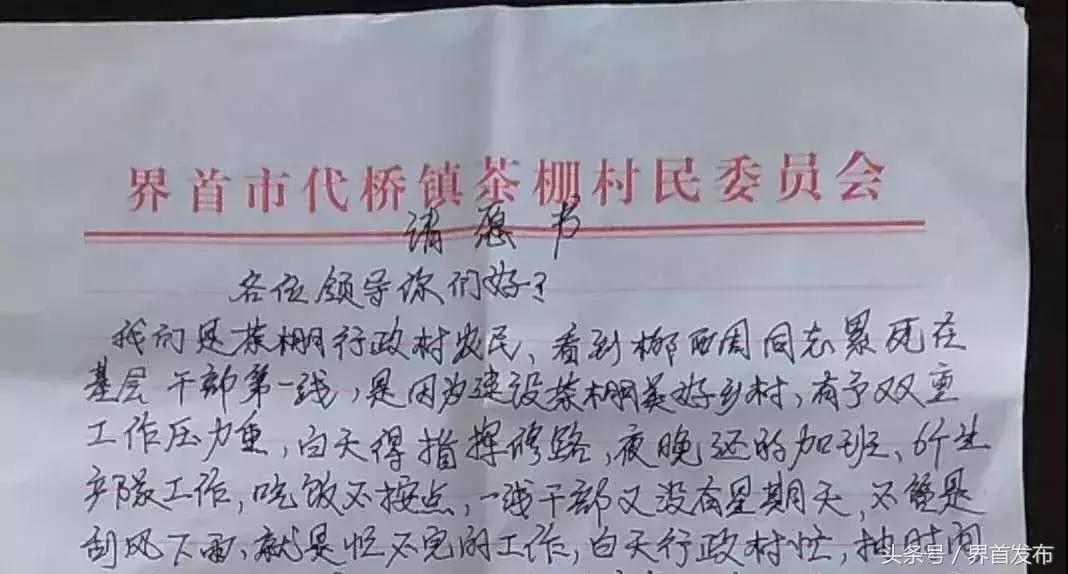 界首市代桥镇茶棚村民委员会
请愿书
各位领导你们好!
我们是茶棚行政村农民、看到柳西周同志累死在
基层干部第一线,是因为建设茶棚美好乡村,有予双重
工作压力重,白天得指挥修路,夜晚还的加班、6个生
产队工作,吃饭不按点,一线干部又没有星期天,不管是
刮风下雨、就是忙不完的工作,白天行政村忙,抽时间
头条号/界首发布